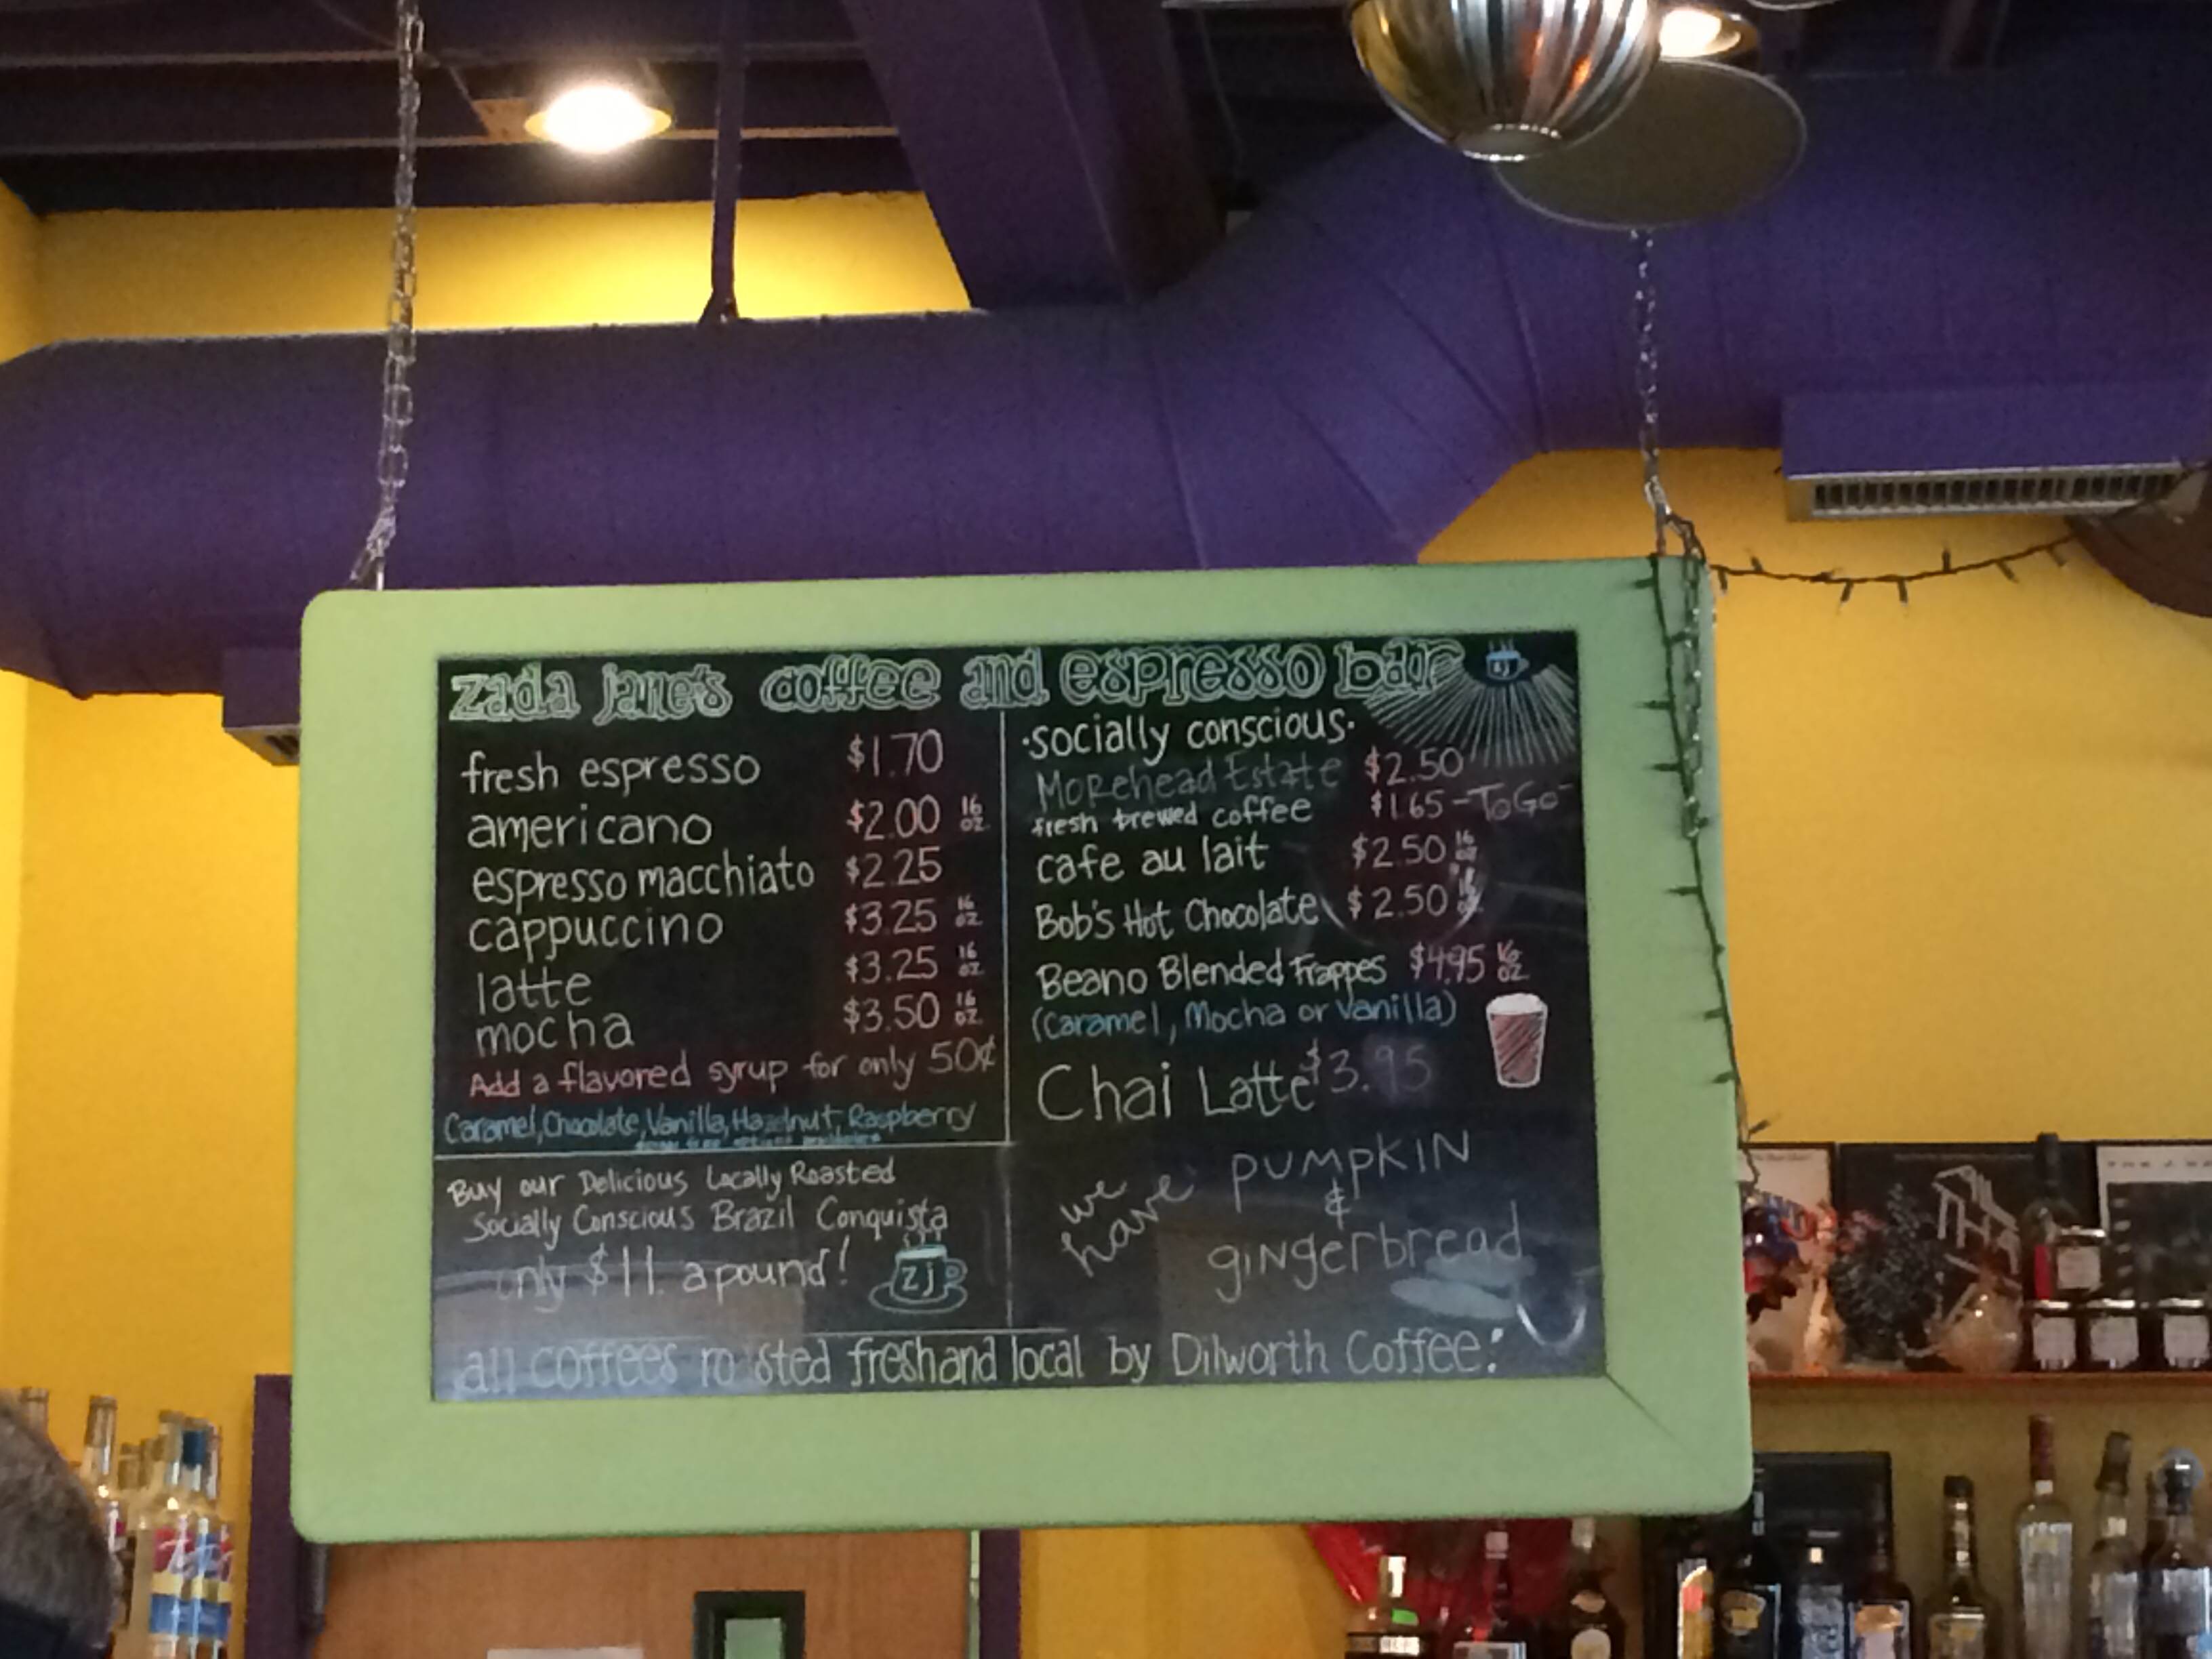 zada jane's coffee and espresso bar
zj
fresh espresso $1.70
americano $2.00 16 oz.
espresso macchiato $2.25
cappuccino $3.25 16 oz.
latte $3.25 16 oz.
mocha $3.50 16 oz.
Add a flavored syrup for only 50¢
Caramel, Chocolate, Vanilla, Hazelnut, Raspberry
Buy our Delicious Locally Roasted
Socially Conscious Brazil Conquista
only $11. a pound!
zj
·socially conscious·
Morehead Estate $2.50
fresh brewed coffee $1.65 -ToGo-
cafe au lait $2.50 16 oz
Bob's Hot Chocolate $2.50
Beano Blended Frappes $4.95 16 oz.
(Caramel, Mocha or Vanilla)
Chai Latte $3.95
we have PUMPKIN
&
gingerbread
all coffees roasted fresh and local by Dilworth Coffee!